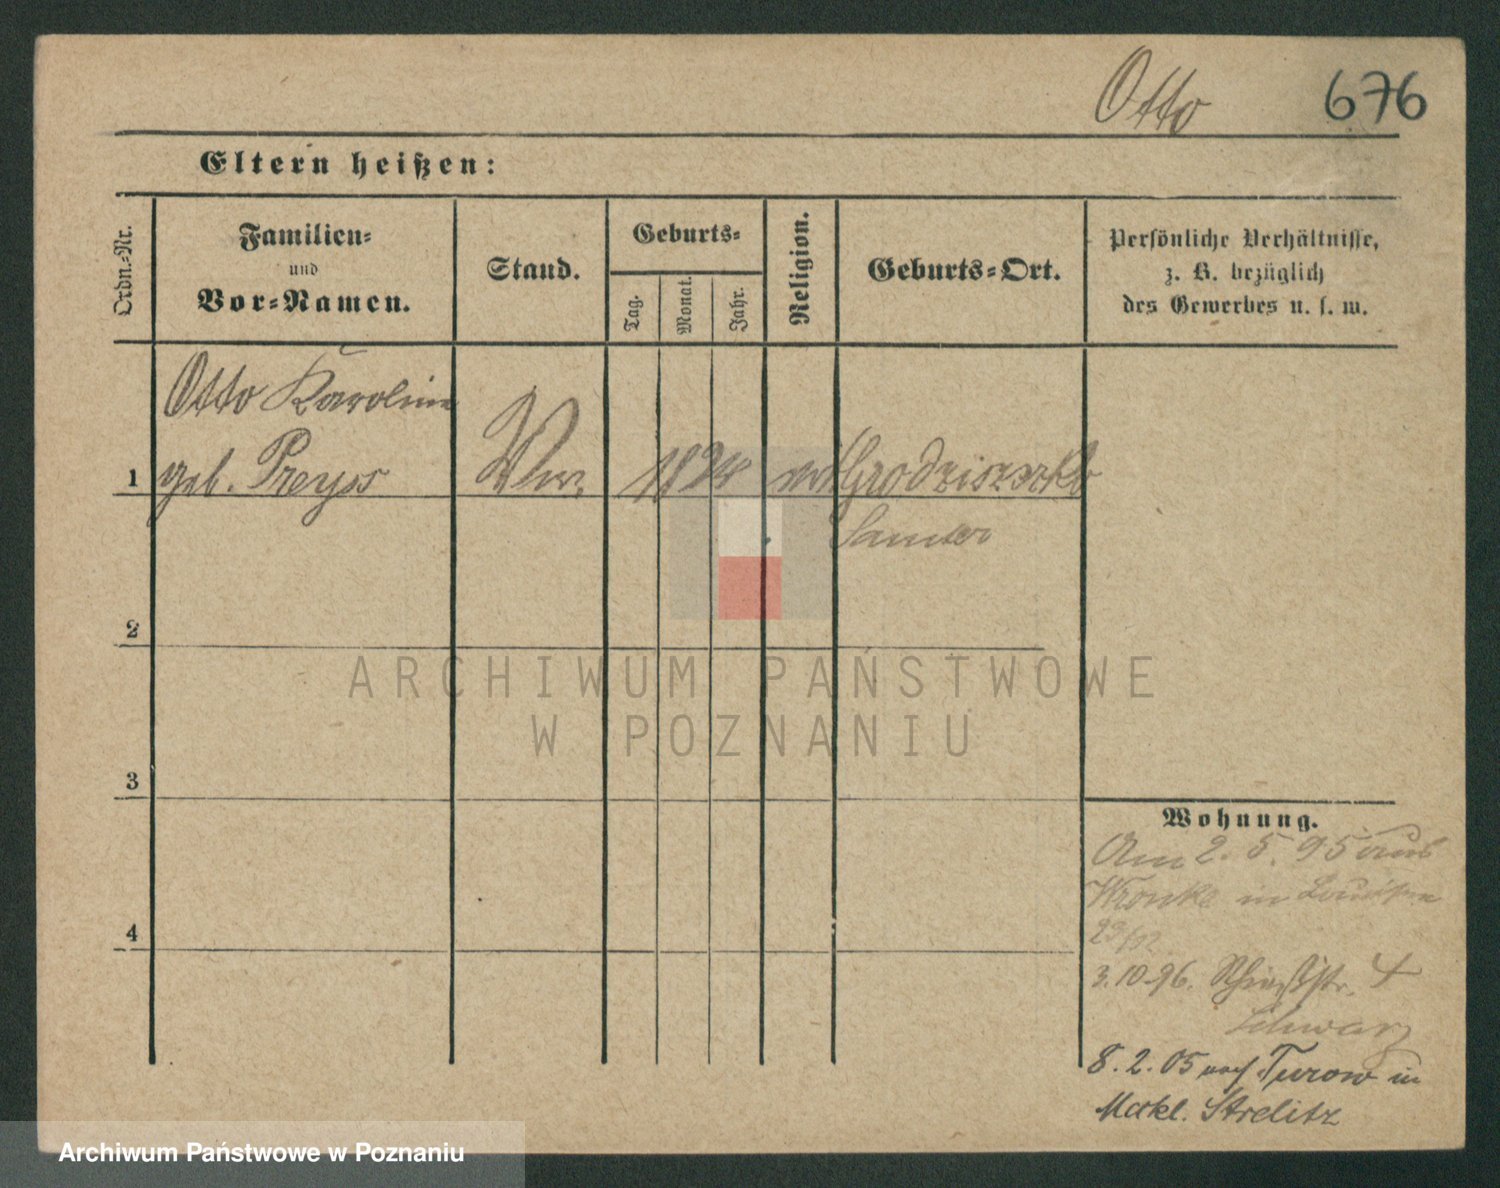 Otto 676
Eltern heißen:
Ordn.-Nr.
Familien-
und
Vor-Namen.
Stand.
Geburts-
Tag.
Monat.
Jahr.
Religion.
Geburts-Ort.
Persönliche Verhältnisse,
z. B. bezüglich
des Gewerbes u. s. w.
Otto Karoline
1 geb. Preyss
Samter
2
ARCHIWUM PAŃSTWOWE
W POZNANIU
3
Wohnung.
Am 2. 5. 95 aus
Wronke in
4
3.10.96. 4
Schwarz
8. 2. 05 nach Turow in
Meckl. Strelitz
Archiwum Państwowe w Poznaniu